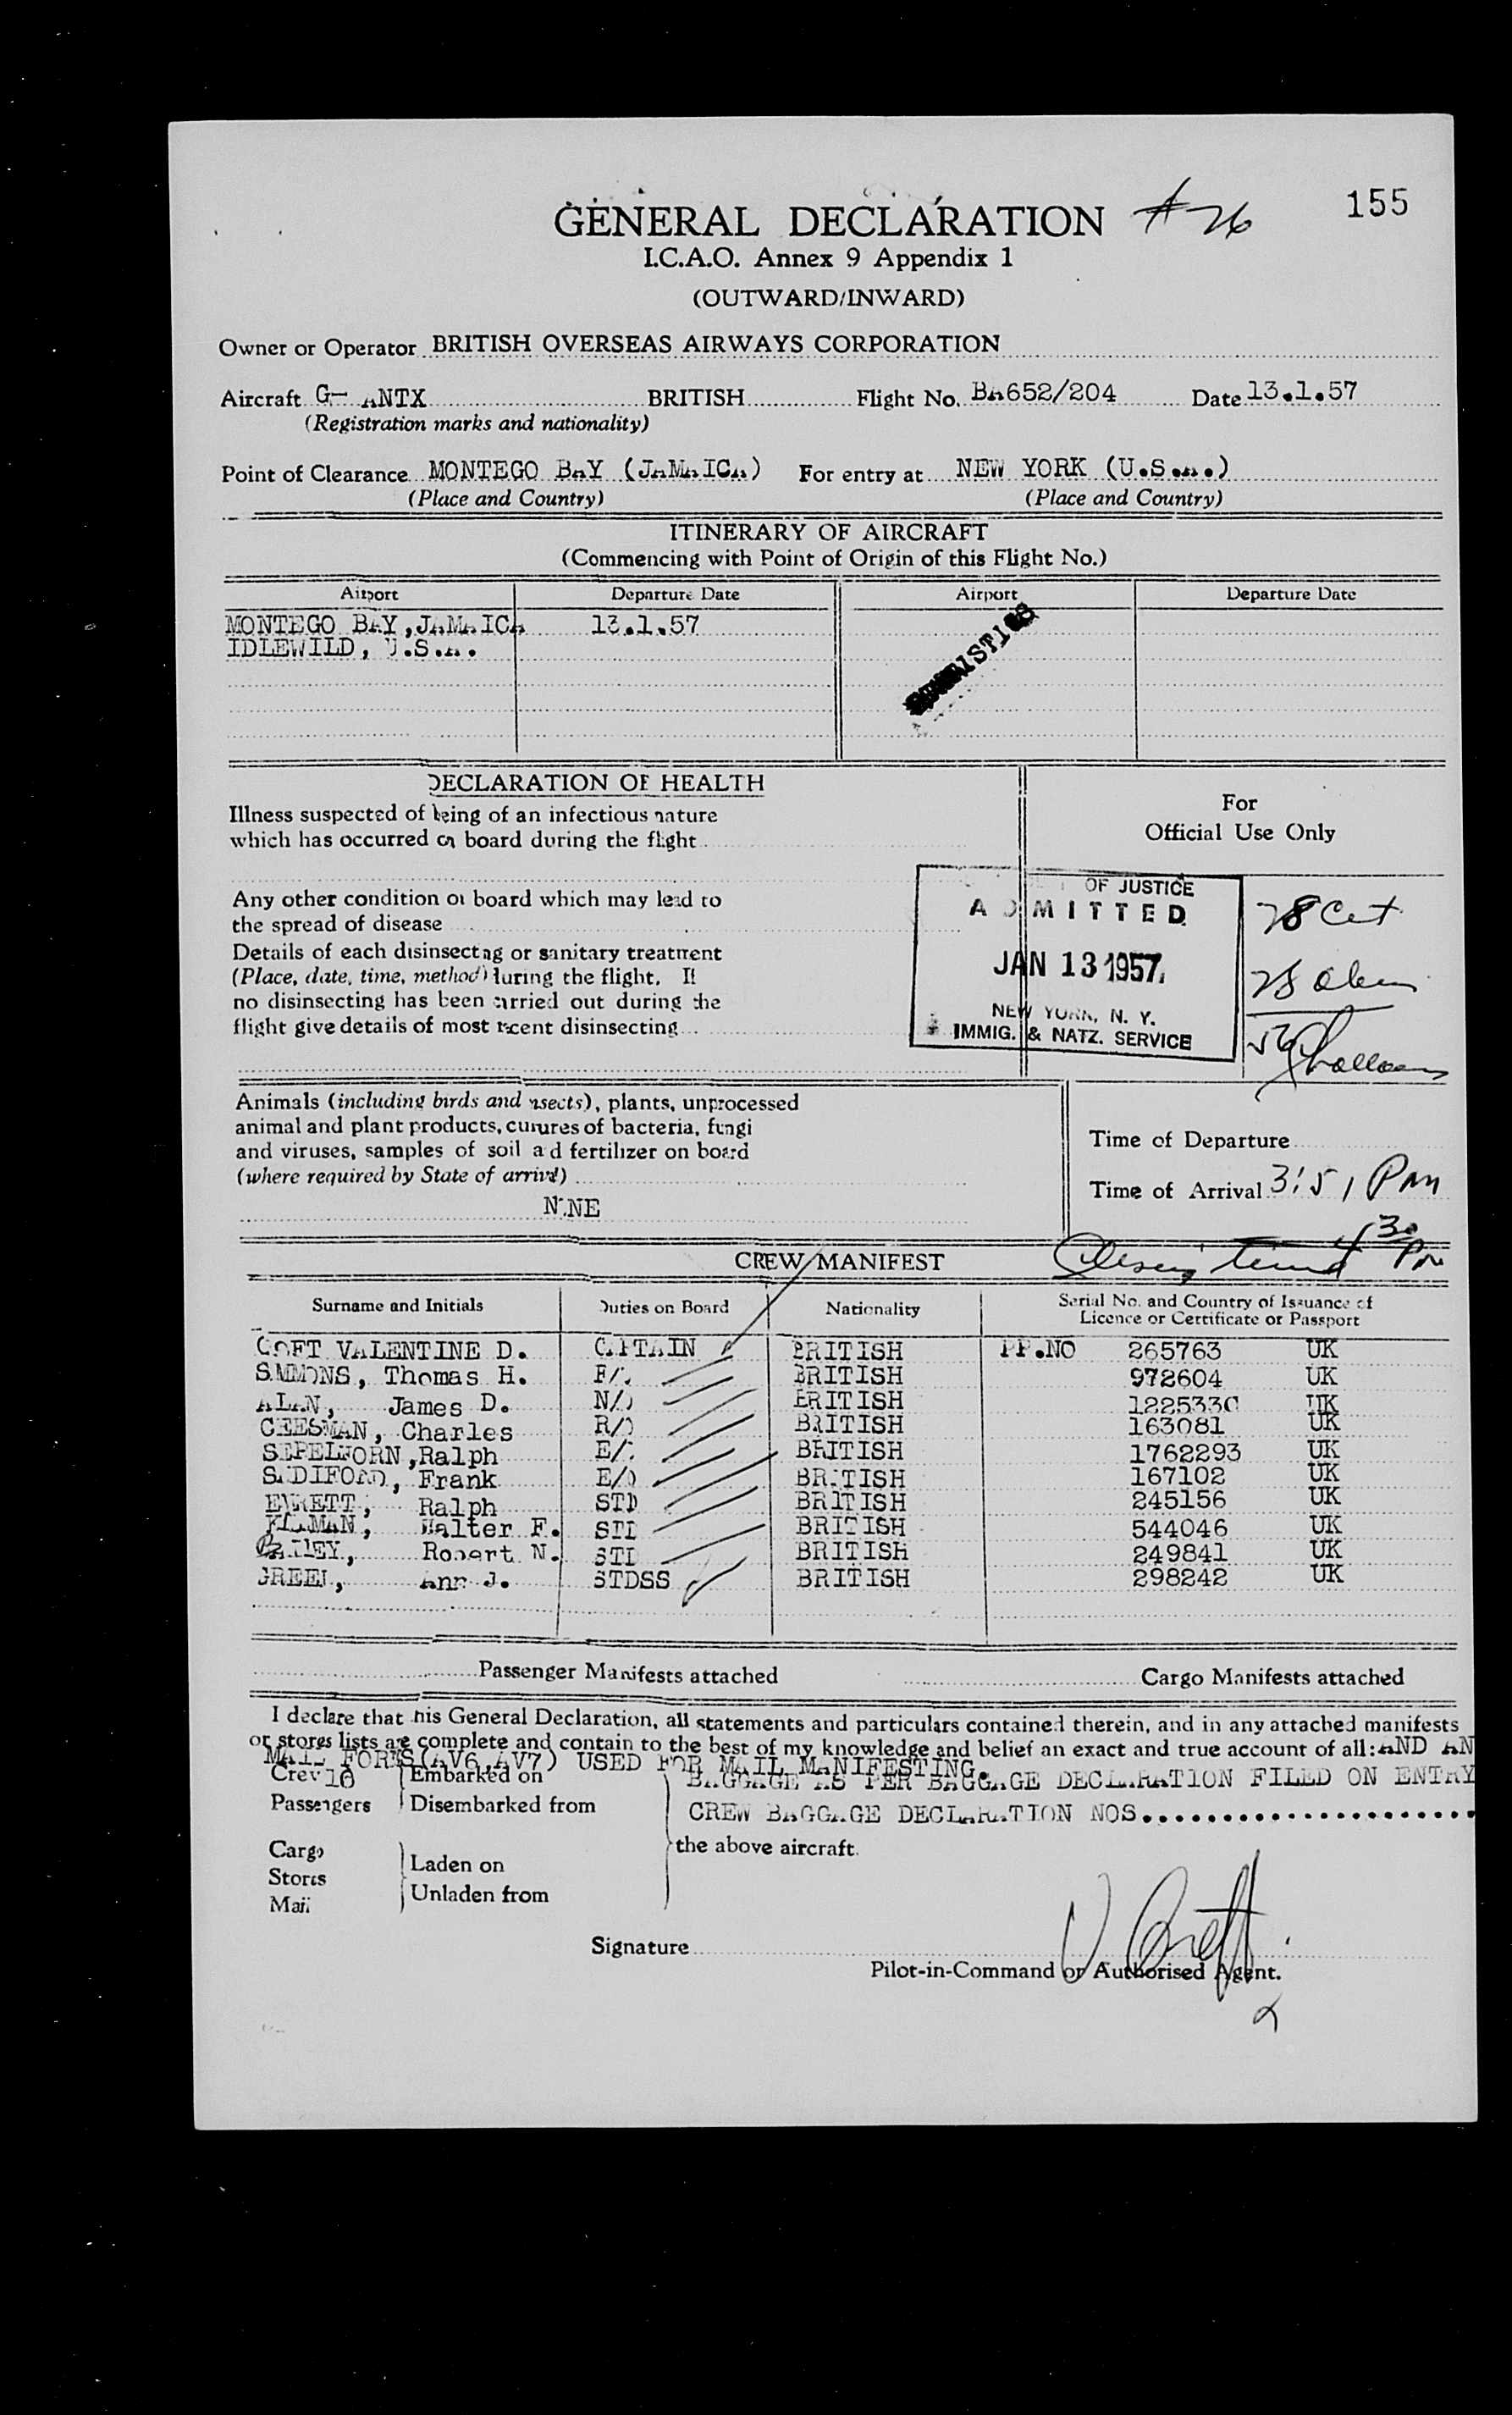 155
GENERAL DECLARATION # 26
I.C.A.O. Annex 9 Appendix 1
(OUTWARD/INWARD)
Owner or Operator BRITISH OVERSEAS AIRWAYS CORPORATION
Aircraft G- ANTX BRITISH Flight No. BA652/204 Date 13.1.57
(Registration marks and nationality)
Point of Clearance MONTEGO BAY (JAMAICA) For entry at NEW YORK (U.S.A.)
(Place and Country) (Place and Country)
ITINERARY OF AIRCRAFT
(Commencing with Point of Origin of this Flight No.)
Airport Departure Date Airport Departure Date
MONTEGO BAY, JAMAICA 13.1.57
IDLEWILD, U.S.A.
DECLARATION OF HEALTH
Illness suspected of being of an infectious nature
which has occurred on board during the flight
Any other condition on board which may lead to
the spread of disease
Details of each disinsecting or sanitary treatment
(Place, date, time, method) during the flight. If
no disinsecting has been carried out during the
flight give details of most recent disinsecting
For
Official Use Only
OF JUSTICE
ADMITTED
JAN 13 1957
NEW YORK, N. Y.
IMMIG. & NATZ. SERVICE
28 Cit
28 alien
56
Animals (including birds and insects), plants, unprocessed
animal and plant products, cultures of bacteria, fungi
and viruses, samples of soil and fertilizer on board
(where required by State of arrival)
NONE
Time of Departure
Time of Arrival 3:51 PM
CREW MANIFEST
Surname and Initials Duties on Board Nationality Serial No. and Country of Issuance of
Licence or Certificate or Passport
VALENTINE D. CAPTAIN BRITISH PP.NO 265763 UK
SIMMONS, Thomas H. F/O BRITISH 972604 UK
ALLAN, James D. N/O BRITISH 1225330 UK
CHEESMAN, Charles R/O BRITISH 163081 UK
Ralph E/O BRITISH 1762293 UK
SANDIFORD, Frank E/O BRITISH 167102 UK
EVERETT, Ralph STD BRITISH 245156 UK
Walter F. STD BRITISH 544046 UK
BAILEY, Robert N. STD BRITISH 249841 UK
GREEN, Ann J. STDSS BRITISH 298242 UK
Passenger Manifests attached Cargo Manifests attached
I declare that this General Declaration, all statements and particulars contained therein, and in any attached manifests
or stores lists are complete and contain to the best of my knowledge and belief an exact and true account of all: AND AN
MAIL FORMS (AV6, AV7) USED FOR MAIL MANIFESTING.
Crew 10 Embarked on BAGGAGE AS PER BAGGAGE DECLARATION FILED ON ENTRY
Passengers Disembarked from CREW BAGGAGE DECLARATION NOS......................
the above aircraft.
Cargo
Stores Laden on
Mail Unladen from
Signature
Pilot-in-Command or Authorised Agent.